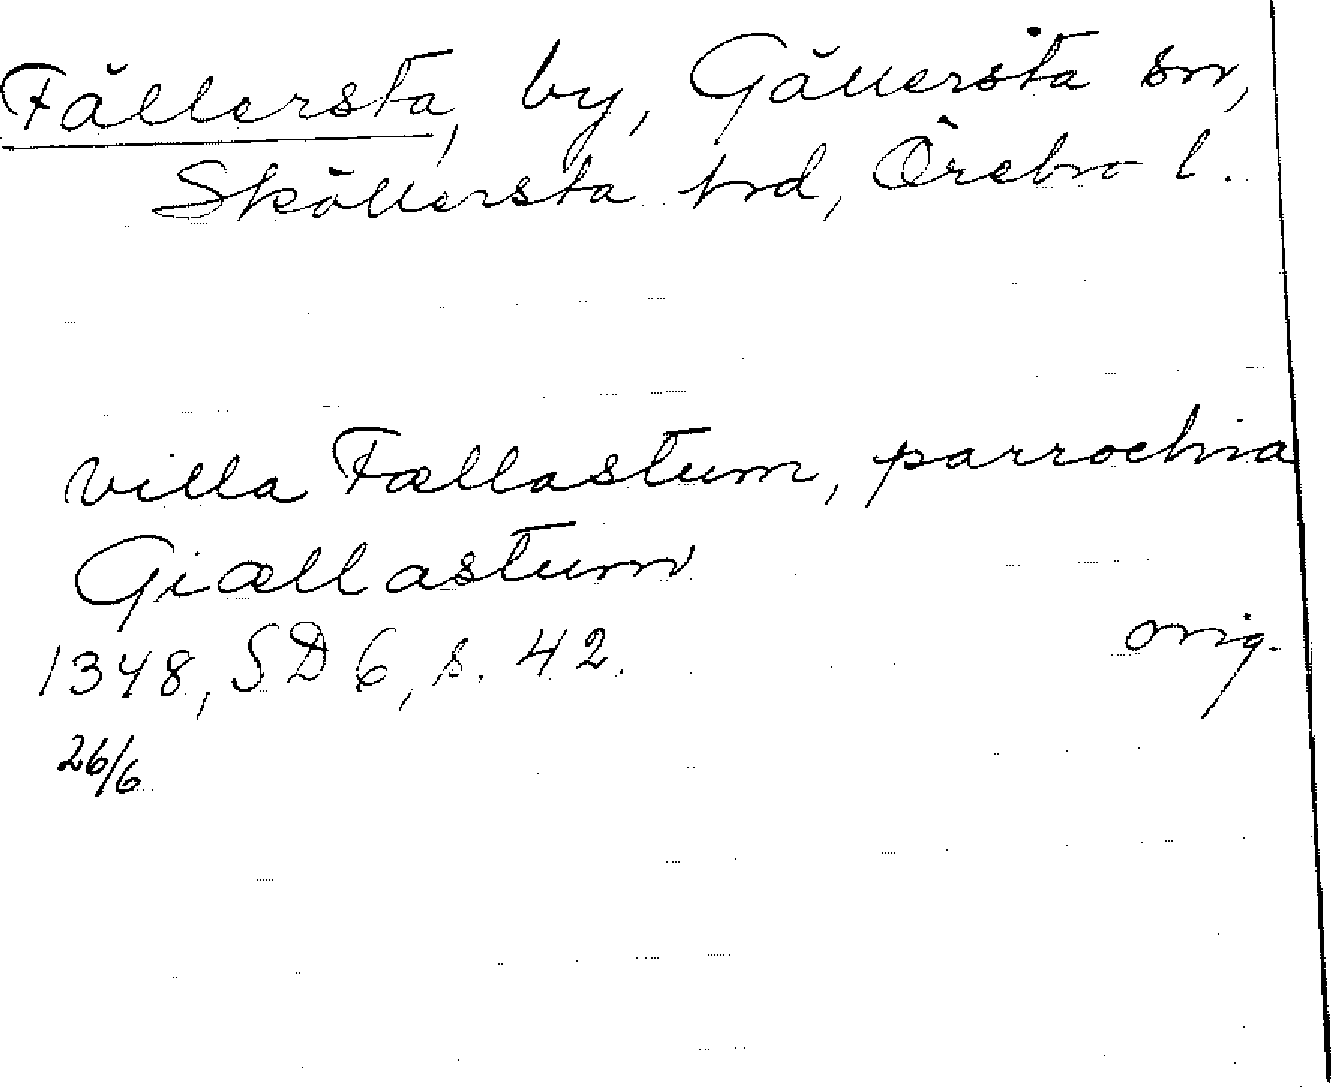 Fällersta, by, Gällersta sn,
Sköllersta hrd, Örebro l.
villa Fællastum, parrochia
Giællastum
1348, SD 6, s. 42. orig.
26/6